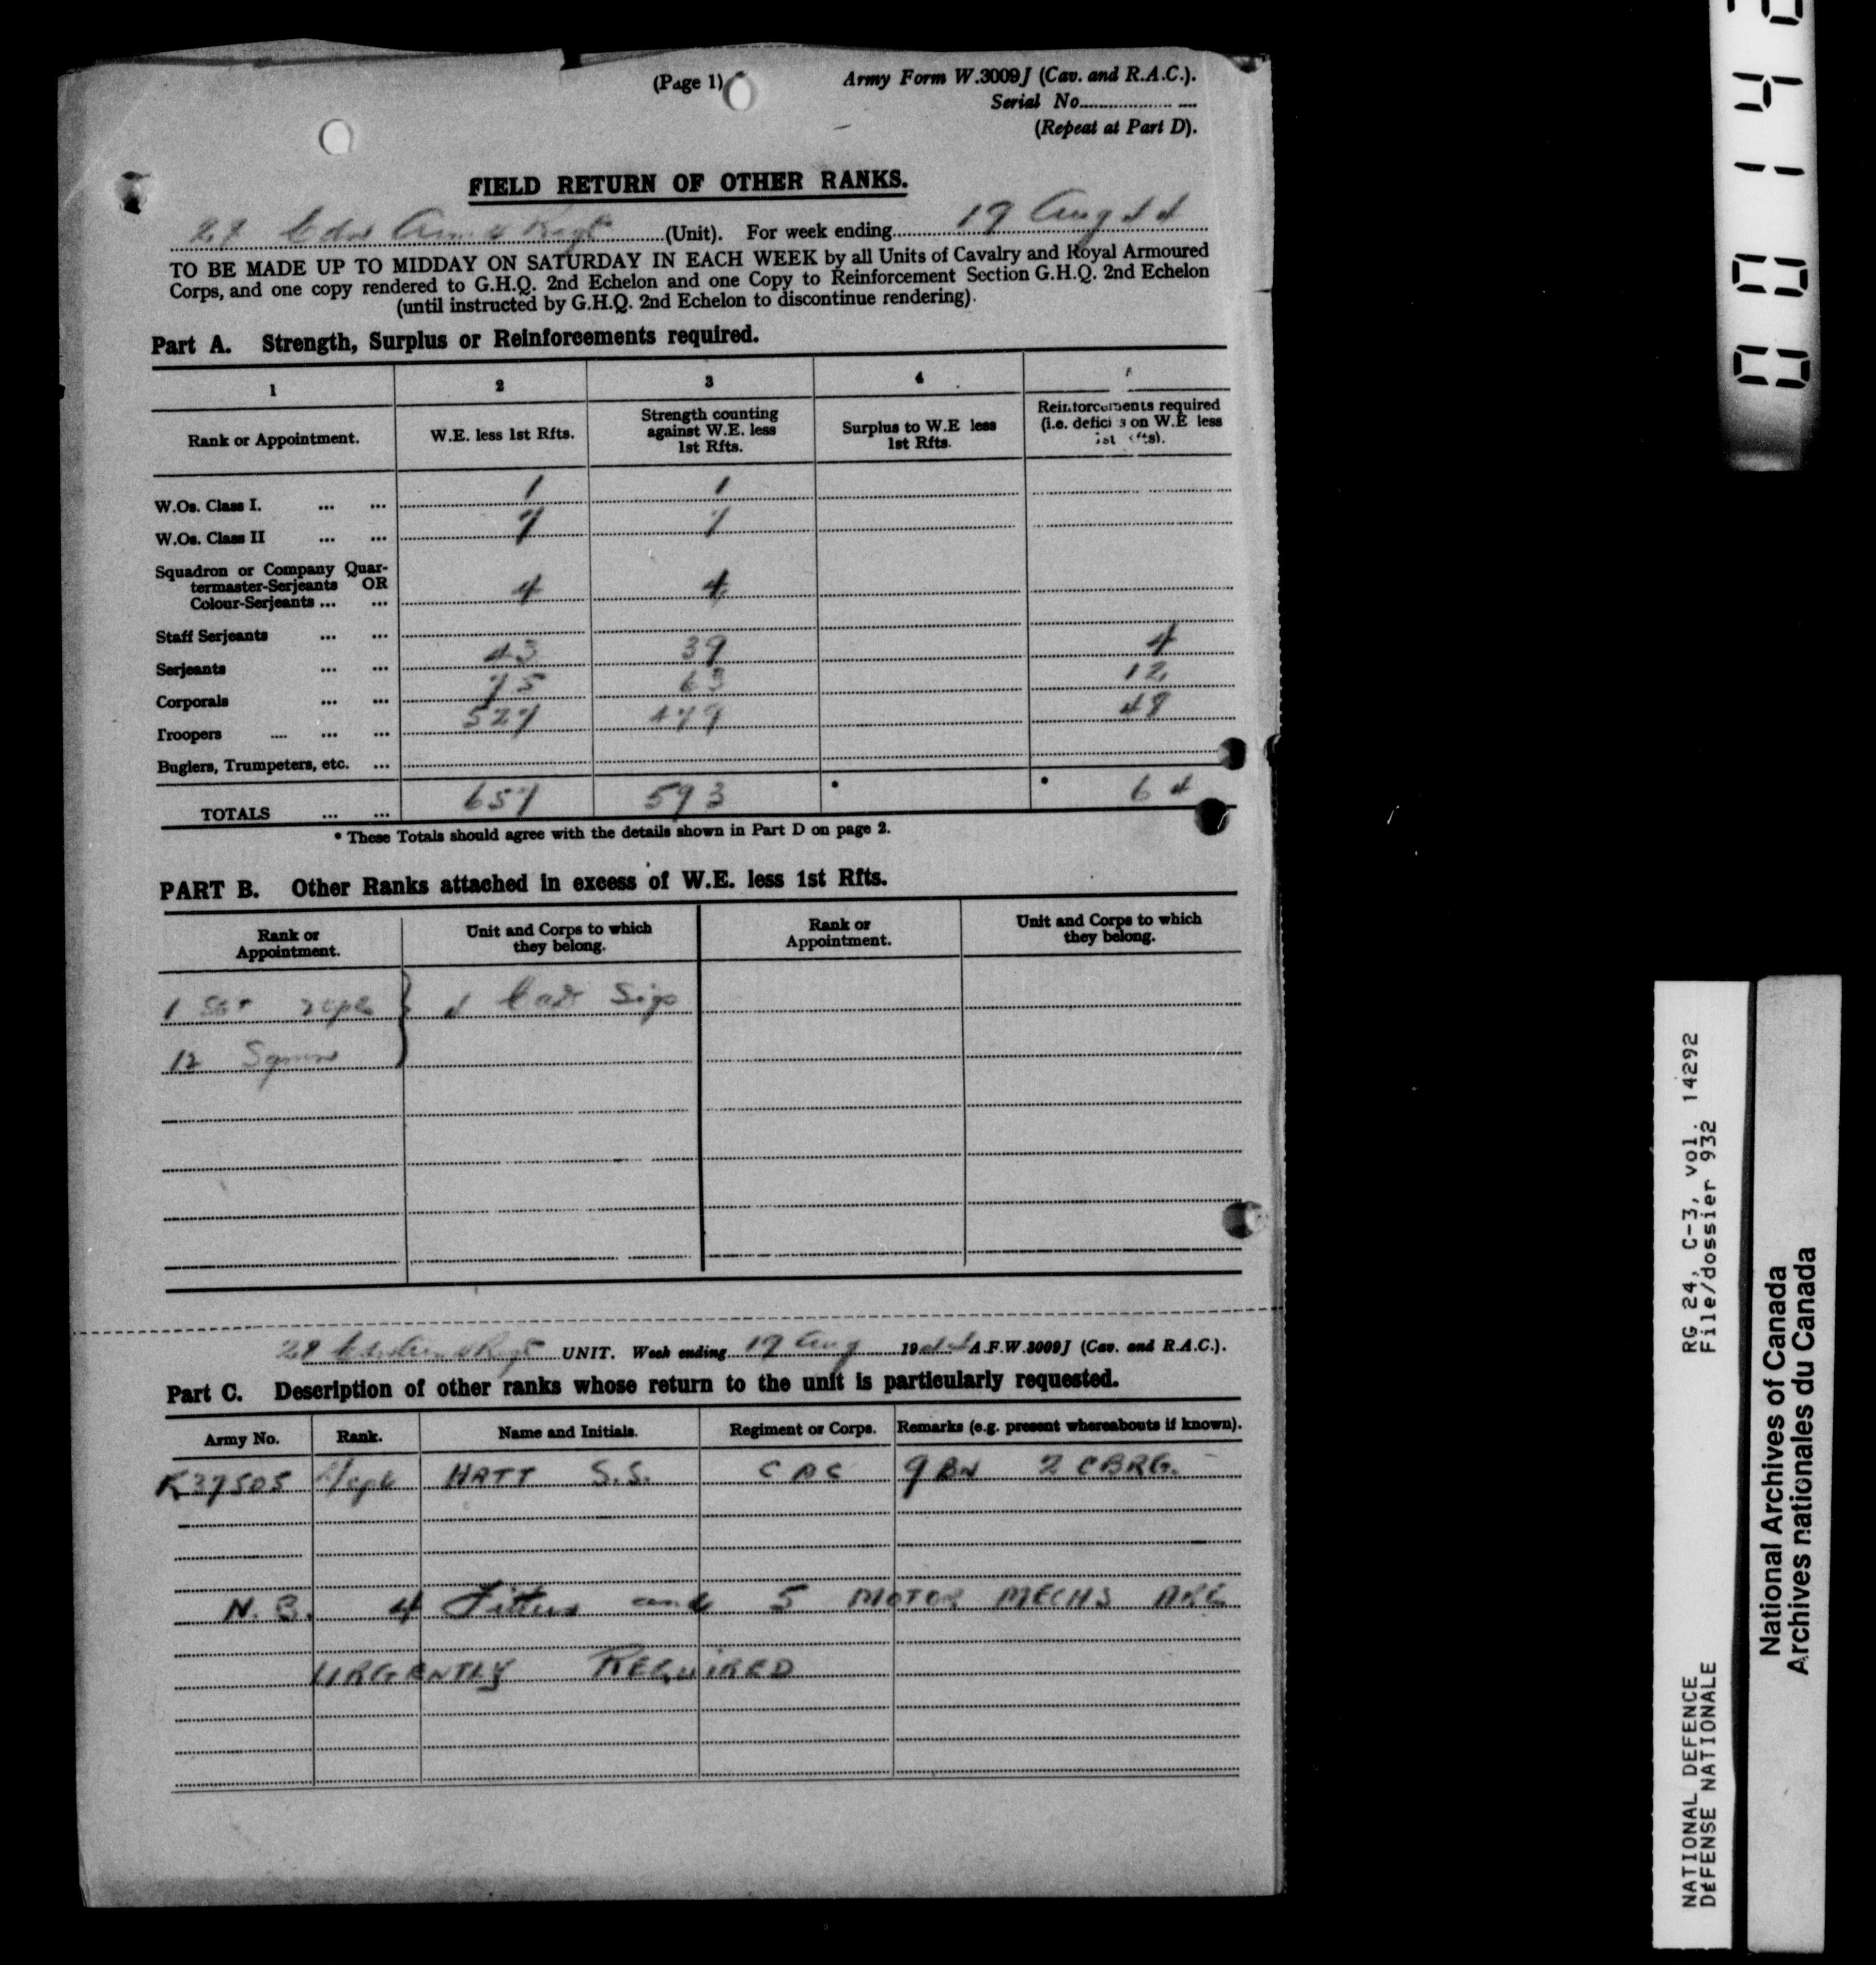 (Page 1)
Army Form W.3009J (Cav. and R.A.C.).
Serial No.
(Repeat at Part D).
FIELD RETURN OF OTHER RANKS.
Cdn Armd Regt (Unit). For week ending 19 Aug 44
TO BE MADE UP TO MIDDAY ON SATURDAY IN EACH WEEK by all Units of Cavalry and Royal Armoured
Corps, and one copy rendered to G.H.Q. 2nd Echelon and one Copy to Reinforcement Section G.H.Q. 2nd Echelon
(until instructed by G.H.Q. 2nd Echelon to discontinue rendering).
Part A. Strength, Surplus or Reinforcements required.
1 2 3 4
Rank or Appointment. W.E. less 1st Rfts. Strength counting against W.E. less 1st Rfts. Surplus to W.E less 1st Rfts. Reinforcements required (i.e. deficits on W.E less 1st Rfts).
W.Os. Class I. ... ... 1 1
W.Os. Class II ... ... 7 7
Squadron or Company Quar-
termaster-Serjeants OR
Colour-Serjeants ... ... 4 4
Staff Serjeants ... ...
Serjeants ... ... 43 39 4
Corporals ... ... 75 63 12
Troopers .... ... ... 527 479 48
Buglers, Trumpeters, etc. ...
TOTALS ... ... 657 593 * * 64
* These Totals should agree with the details shown in Part D on page 2.
PART B. Other Ranks attached in excess of W.E. less 1st Rfts.
Rank or Appointment. Unit and Corps to which they belong. Rank or Appointment. Unit and Corps to which they belong.
1 Sgt 2 Cpls 4 Cdn Sigs
12 Sgmn
Cdn Armd Regt UNIT. Week ending 19 Aug 1944 A.F.W.3009J (Cav. and R.A.C.).
Part C. Description of other ranks whose return to the unit is particularly requested.
Army No. Rank. Name and Initials. Regiment or Corps. Remarks (e.g. present whereabouts if known).
K37505 Cpl HATT S.S. CAC 9 BN 2 CBRG.
N.B. 4 Fitters and 5 MOTOR MECHS ARE
URGENTLY REQUIRED
0 0 1 4
RG 24, C-3, vol. 14292
File/dossier 932
NATIONAL DEFENCE
DÉFENSE NATIONALE
National Archives of Canada
Archives nationales du Canada